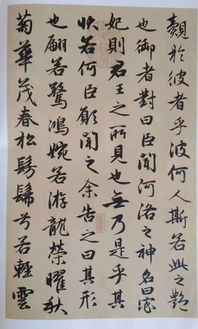 覿於彼者乎彼何人斯若此之艷
也御者對曰臣聞河洛之神名曰宓
妃則君王之所見也無乃是乎其
狀若何臣願聞之余告之曰其形
也翩若驚鴻婉若游龍榮曜秋
菊華茂春松髣髴兮若輕雲